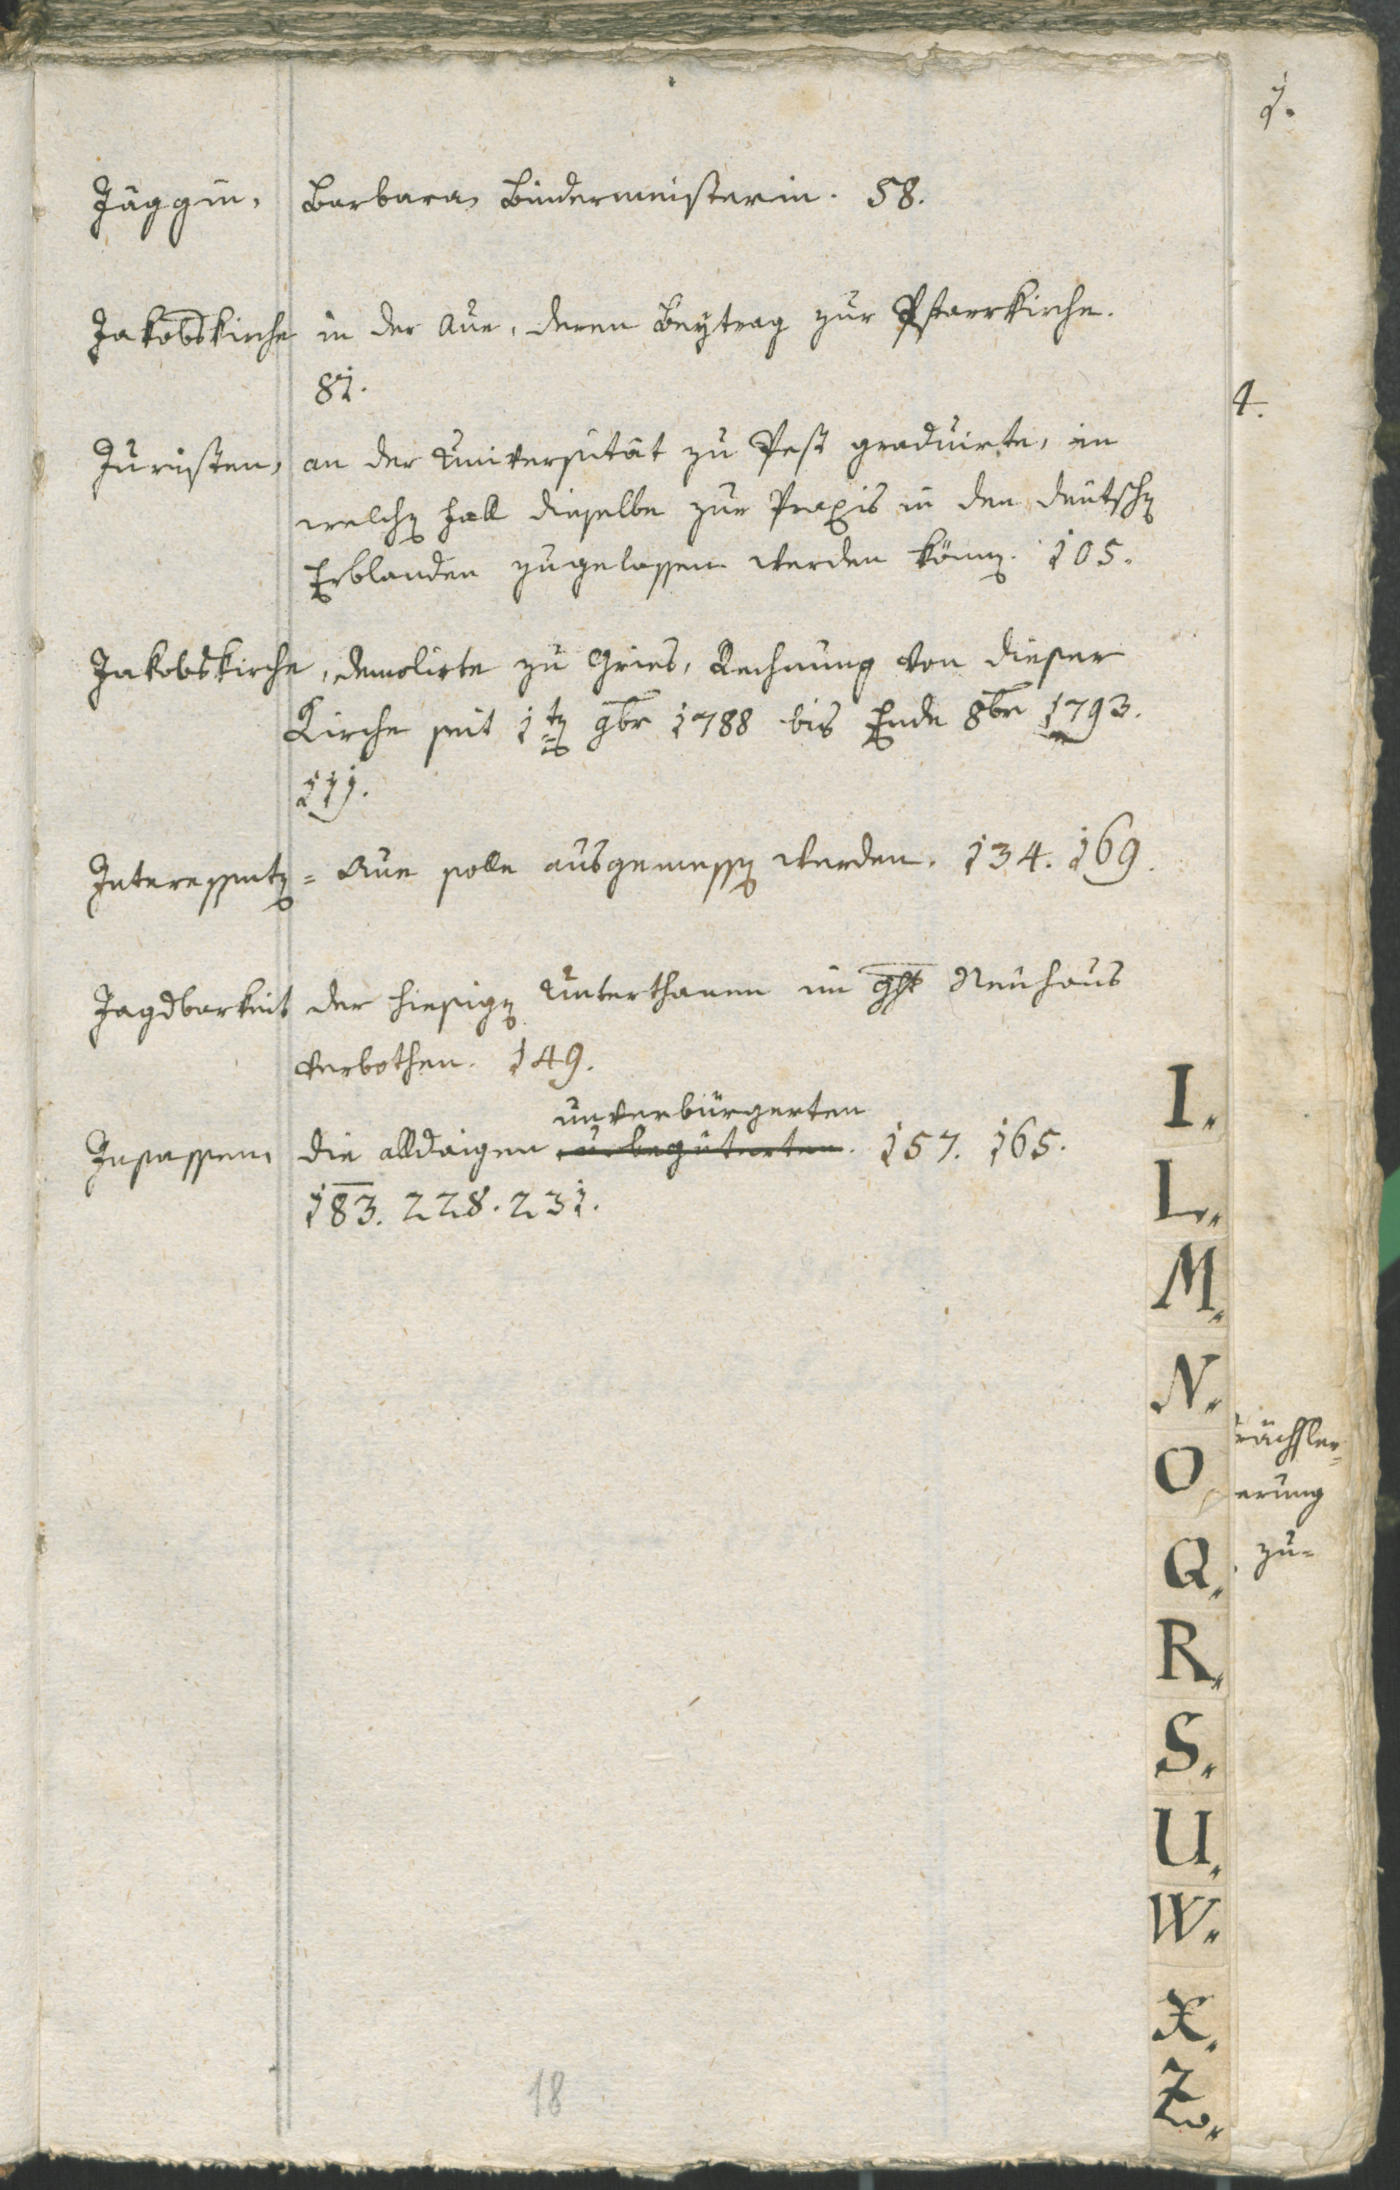 Jäggin, Barbara, Bindermeisterin. 58.
Jakobskirche in der Aue, deren Beytrag zur Pfarrkirche.
81.
Juristen, an der Universität zu Pest graduirte, in
welchen Fall dieselbe zur Praxis in den deutschen
Erblanden zugelassen werden können. 105.
Jakobskirche, demolirte zu Gries, Rechnung von dieser
Kirche seit 1ten 9br 1788 bis Ende 8br 1793.
111.
Interessenten = Aue solle ausgemessen werden. 134. 169.
Jagdbarkeit der hiesigen Unterthanen im Ght Neuhaus
verbothen. 149.
unverbürgerten
Insassen, die alldaigen unbegüterten. 157. 165.
183. 228. 231.
18
I.
L.
M.
N.
O.
Q.
R.
S.
U.
W.
X.
Z.
4.
erung
zu=